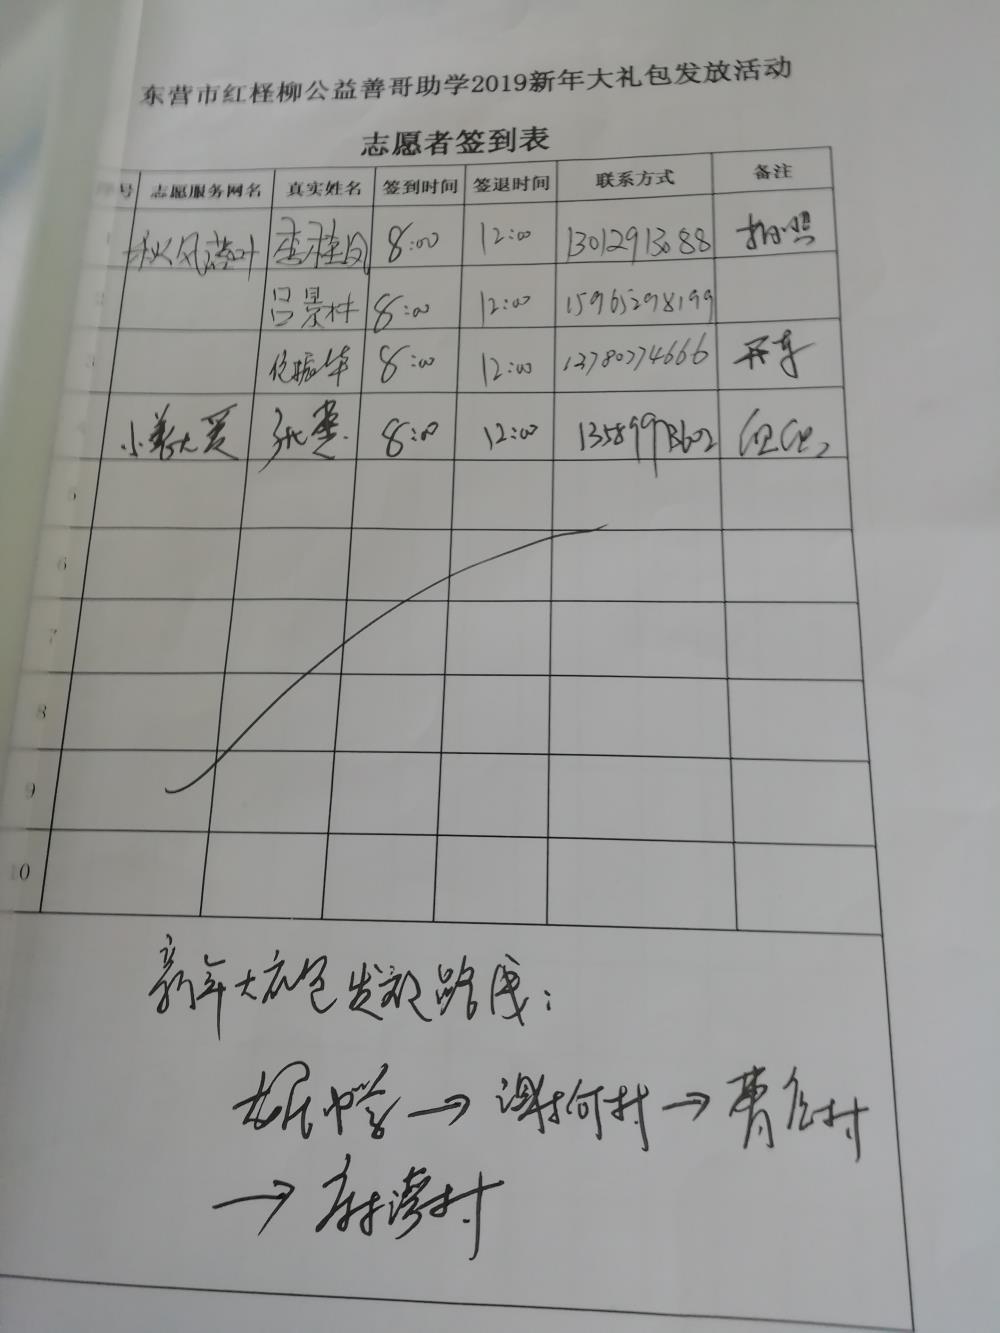 东营市红柽柳公益善哥助学2019新年大礼包发放活动
志愿者签到表
序号 志愿服务网名 真实姓名 签到时间 签退时间 联系方式 备注
1 秋风落叶 李桂凤 8:00 12:00 13012913088 拍照
2 吕景林 8:00 12:00 15965298199
3 倪振华 8:00 12:00 13780774666 开车
4 小善大爱 8:00 12:00
5
6
7
8
9
10
新年大礼包发放路线:
中学 → 谢何村 → 曹店村
→ 麻湾村